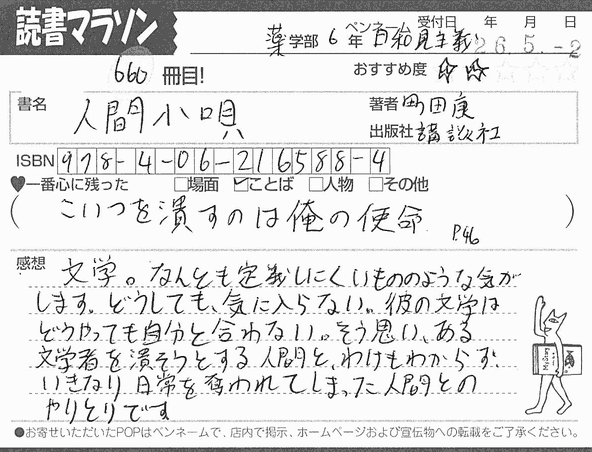 読書マラソン
受付日 年 月 日
薬学部 6年 ペンネーム 日和見主義
26.5.-2
660冊目!
おすすめ度 ☆☆
書名 人間小唄
著者 町田康
出版社 講談社
ISBN 978-4-06-216588-4
♥一番心に残った □場面 ☑ことば □人物 □その他
(こいつを潰すのは俺の使命 P.46)
感想 文学。なんとも定義しにくいもののような気が
します。どうしても、気に入らない。彼の文学は
どうやっても自分と合わない。そう思い、ある
文学者を潰そうとする人間と、わけもわからず、
いきなり日常を奪われてしまった人間との
やりとりです
●お寄せいただいたPOPはペンネームで、店内で掲示、ホームページおよび宣伝物への転載をご了承ください。